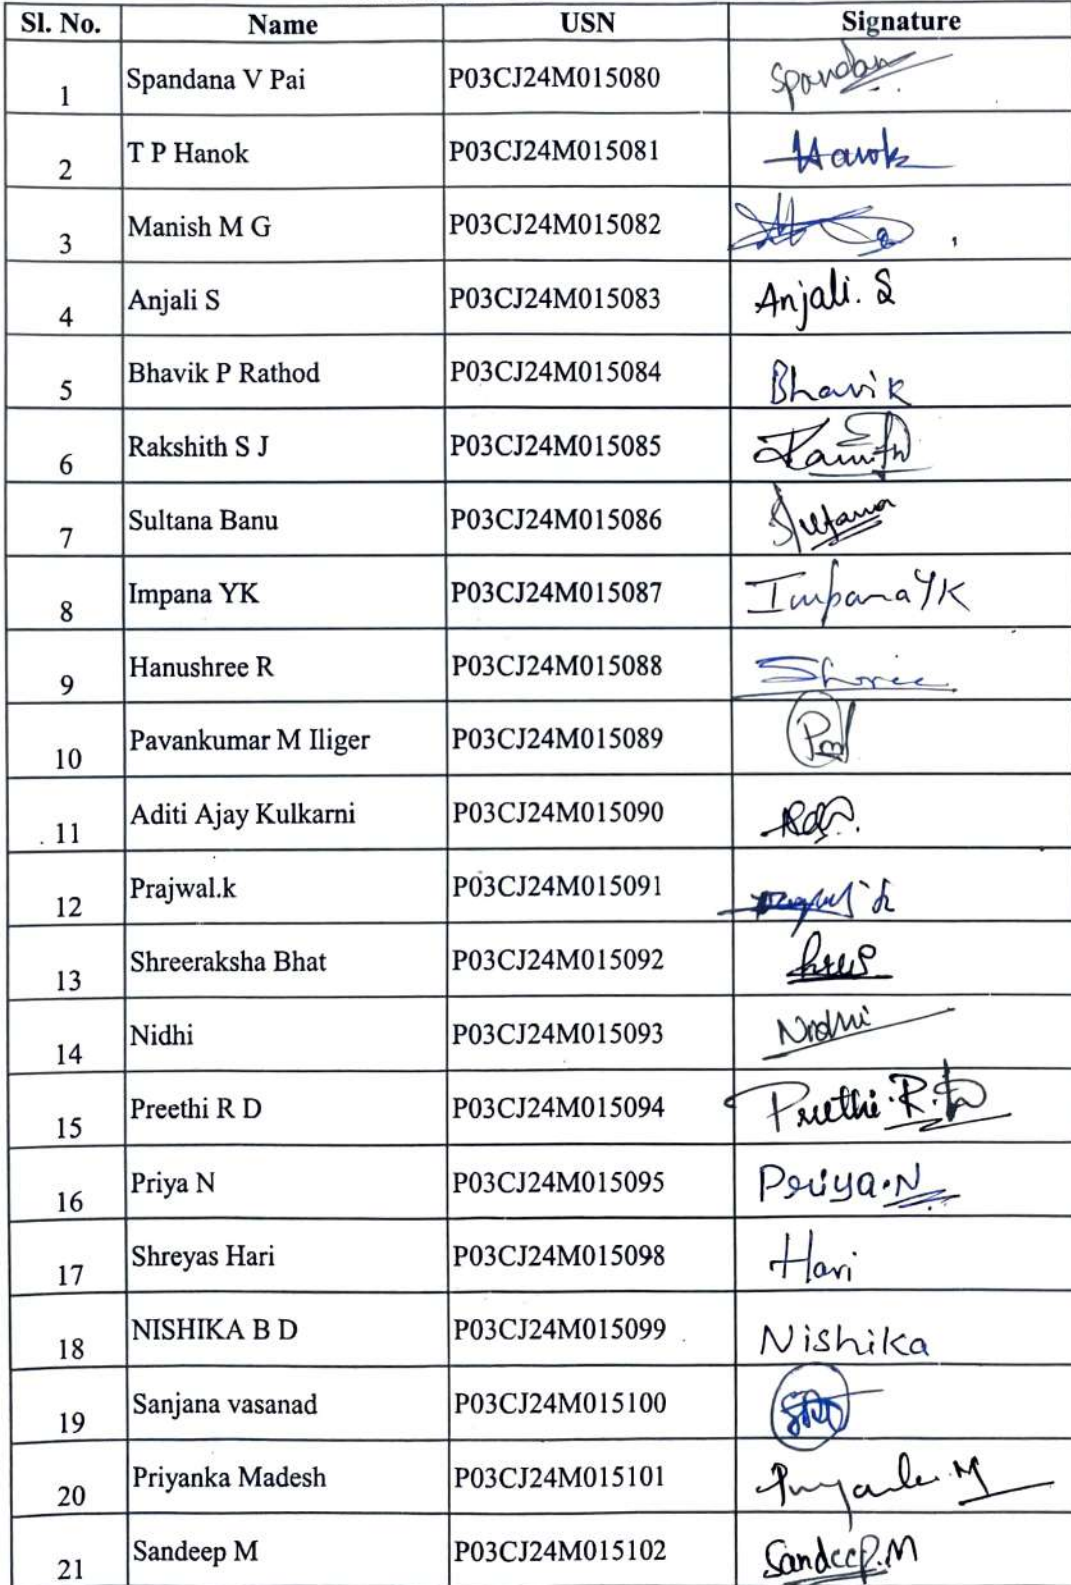 Sl. No. Name USN Signature
1 Spandana V Pai P03CJ24M015080 Spandan
2 T P Hanok P03CJ24M015081 Hanok
3 Manish M G P03CJ24M015082
4 Anjali S P03CJ24M015083 Anjali. S
5 Bhavik P Rathod P03CJ24M015084 Bhavik
6 Rakshith S J P03CJ24M015085
7 Sultana Banu P03CJ24M015086 Sultana
8 Impana YK P03CJ24M015087 Impana YK
9 Hanushree R P03CJ24M015088 Shree
10 Pavankumar M Iliger P03CJ24M015089
11 Aditi Ajay Kulkarni P03CJ24M015090
12 Prajwal.k P03CJ24M015091
13 Shreeraksha Bhat P03CJ24M015092
14 Nidhi P03CJ24M015093 Nidhi
15 Preethi R D P03CJ24M015094 Preethi.R.D
16 Priya N P03CJ24M015095 Priya.N
17 Shreyas Hari P03CJ24M015098 Hari
18 NISHIKA B D P03CJ24M015099 Nishika
19 Sanjana vasanad P03CJ24M015100
20 Priyanka Madesh P03CJ24M015101 Priyanka.M
21 Sandeep M P03CJ24M015102 Sandeep.M